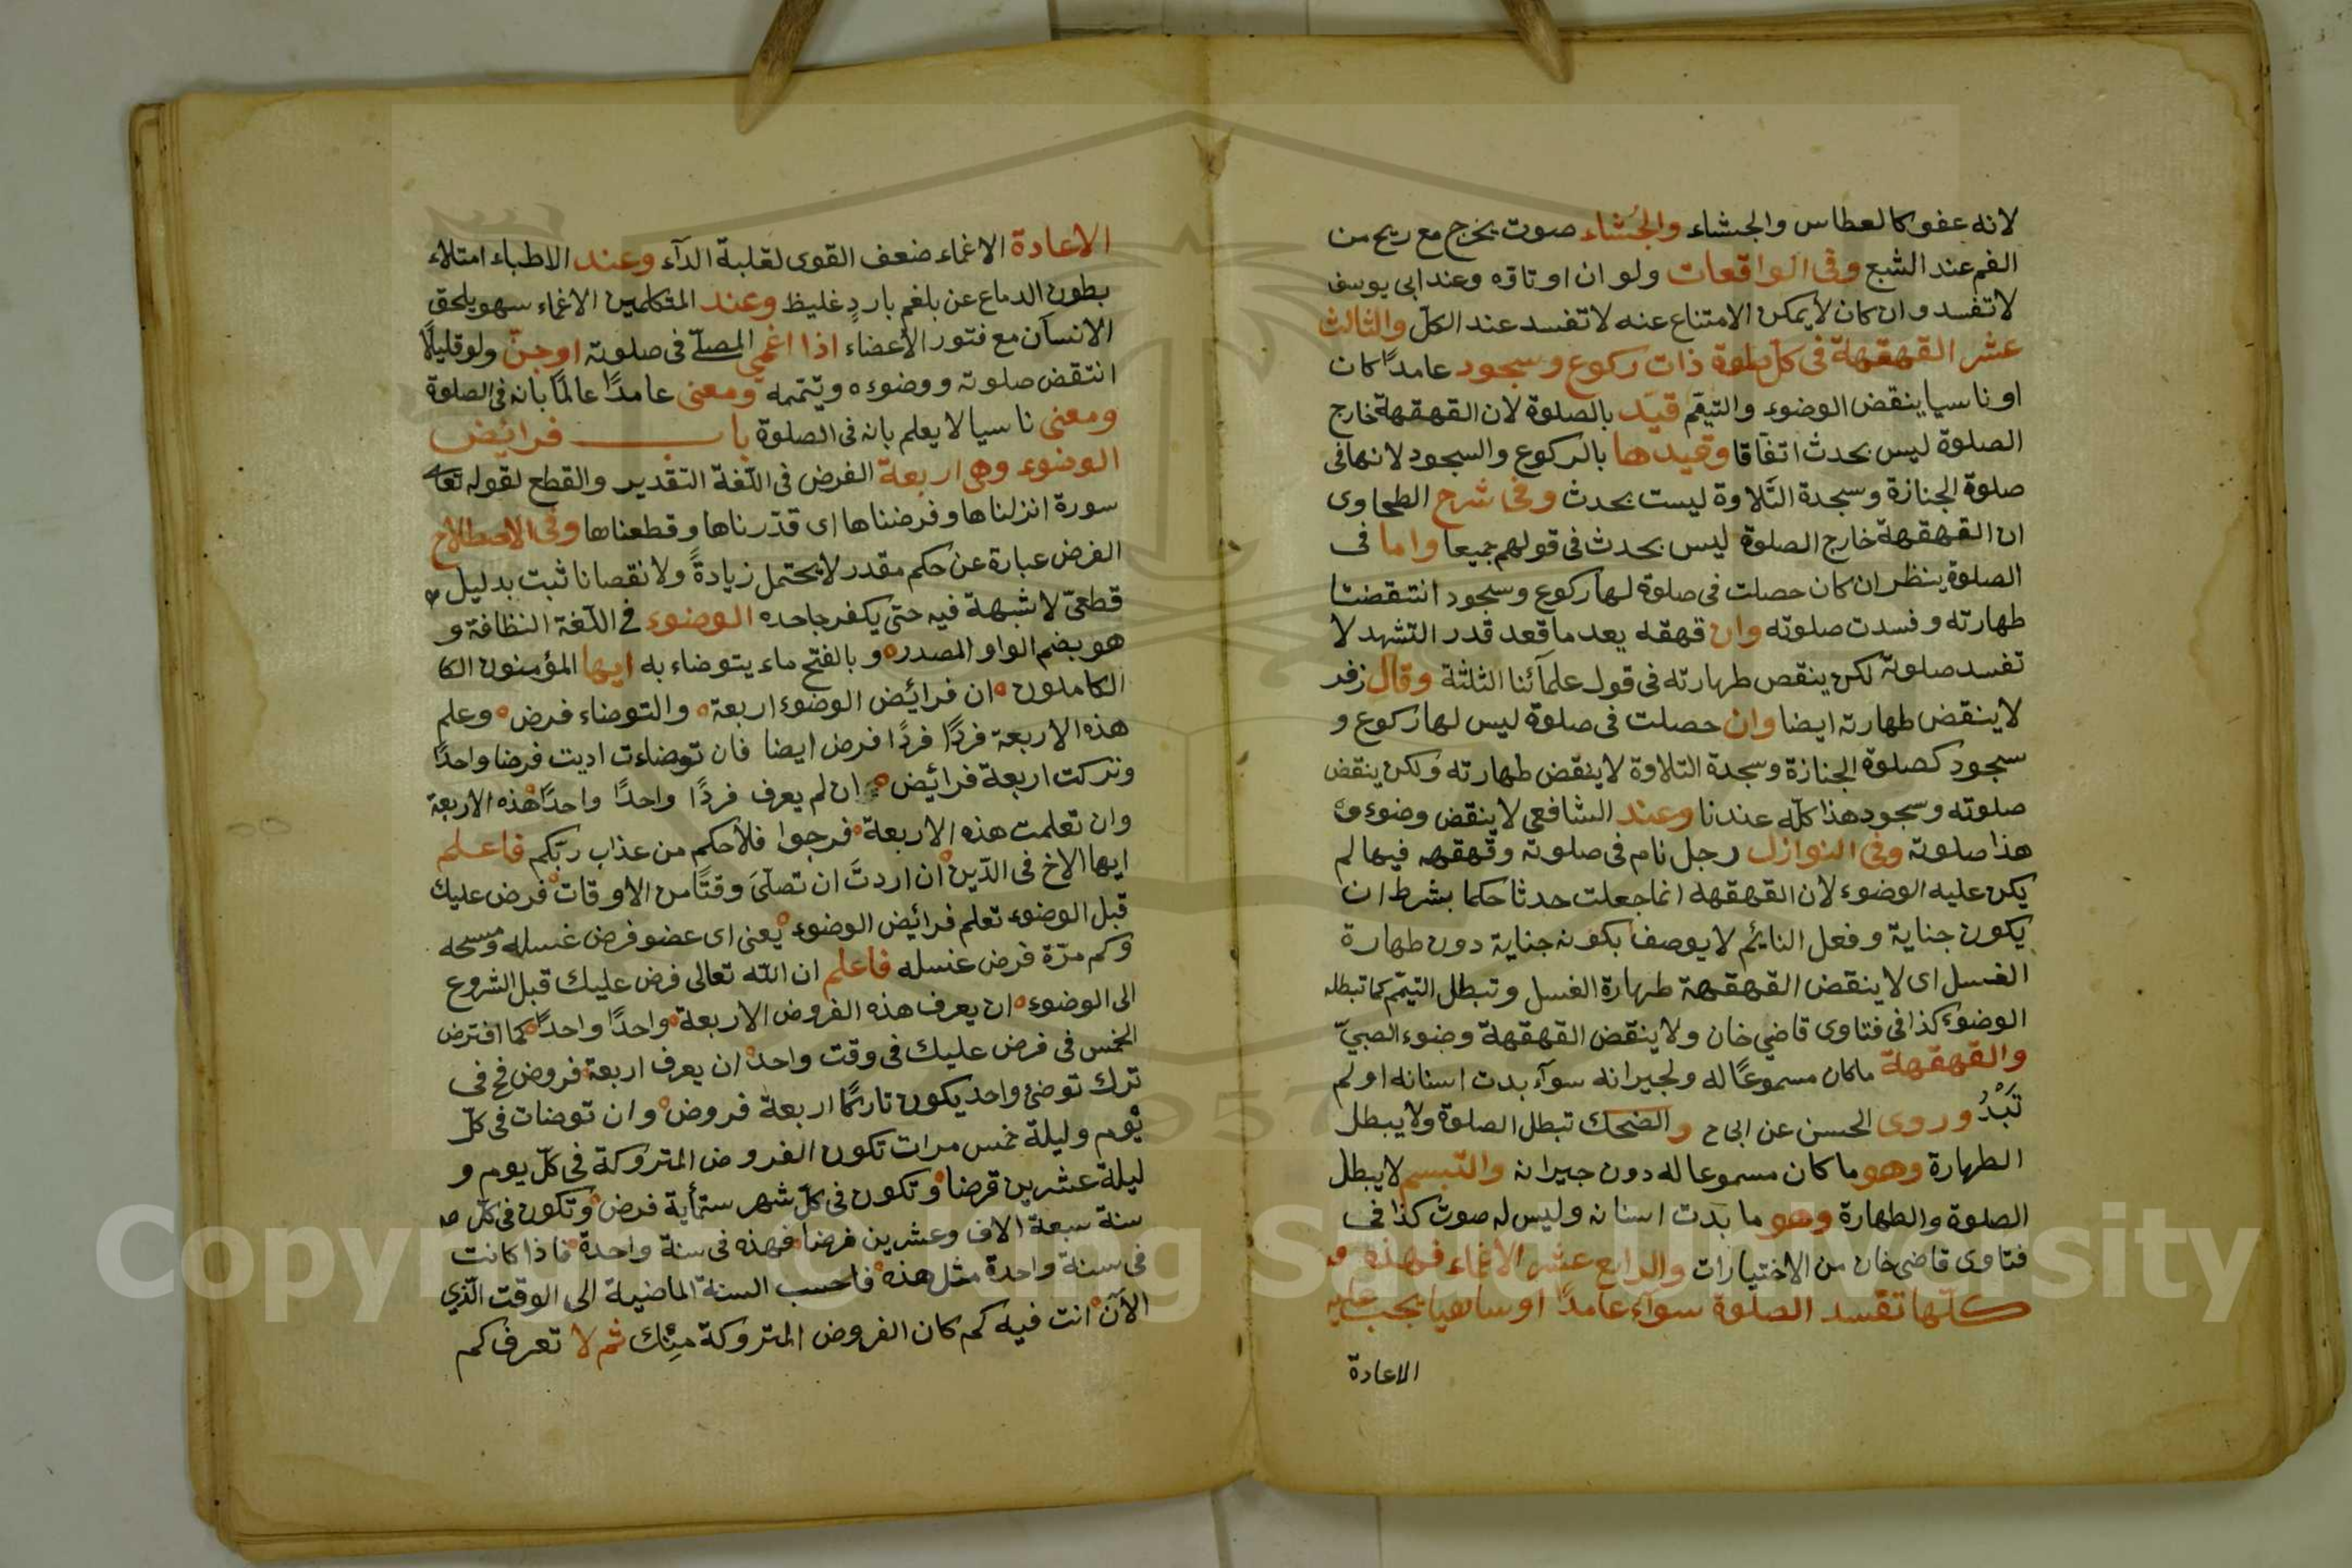 لانه عفو كالعطاس والجشاء والجُشاء صوت يخرج مع ريح من
الفم عند الشبع وفى الواقعات ولو ان او تاوه وعند ابى يوسف
لا تفسد وان كان لا يمكن الامتناع عنه لا تفسد عند الكلّ والثالث
عشر القهقهة فى كلّ صلوة ذات ركوع وسجود عامدًا كان
او ناسيا ينقض الوضوء والتيمّم قيّد بالصلوة لان القهقهة خارج
الصلوة ليس بحدث اتفاقا وقيدها بالركوع والسجود لانها فى
صلوة الجنازة وسجدة التّلاوة ليست بحدث وفى شرح الطحاوى
ان القهقهة خارج الصلوة ليس بحدث فى قولهم جميعا واما فى
الصلوة ينظر ان كان حصلت فى صلوة لها ركوع وسجود انتقضت
طهارته وفسدت صلوته وان قهقه بعد ما قعد قدر التشهد لا
تفسد صلوته لكن ينقص طهارته فى قول علمآئنا الثلثة وقال زفر
لا ينقض طهارته ايضا وان حصلت فى صلوة ليس لها ركوع و
سجود كصلوة الجنازة وسجدة التلاوة لا ينقض طهارته ولكن ينقض
صلوته وسجود هذا كلّه عندنا وعند الشافعى لا ينقض وضوءه
هذا صلوته وفى النوازل رجل نام فى صلوته وقهقهه فيها لم
يكن عليه الوضوء لان القهقهه انما جعلت حدثا حكما بشرط ان
يكون جناية وفعل النائم لا يوصف بكونه جناية دون طهارة
الغسل اى لا ينقض القهقهة طهارة الغسل وتبطل التيمّم كما تبطله
الوضوء كذا فى فتاوى قاضي خان ولا ينقض القهقهة وضوء الصبيّ
والقهقهة ماكان مسموعًا له ولجيرانه سوآء بدت اسنانه او لم
تَبْدُ وروى الحسن عن ابى ح والضحك تبطل الصلوة ولا يبطل
الطهارة وهو ما كان مسموعا له دون جيرانه والتبسم لا يبطل
الصلوة والطهارة وهو ما بدت اسنانه وليس له صوت كذا فى
فتاوى قاضى خان من الاختيارات والرابع عشر الاغماء فهذه
كلّها تفسد الصلوة سوآء عامدًا او ساهيا يجب عليه
الاعادة
الاعادة الاغماء ضعف القوى لغلبة الدآء وعند الاطباء امتلاء
بطون الدماع عن بلغم باردٍ غليظ وعند المتكلمين الاغماء سهو يلحق
الانسان مع فتور الاعضاء اذا اغمي المصلّے فى صلوته او جنّ ولو قليلًا
انتقض صلوته ووضوءه وتيتممه ومعنى عامدًا عالمًا بانه فى الصلوة
ومعنى ناسيا لا يعلم بانه فى الصلوة باب فرائض
الوضوء وهى اربعة الفرض فى اللّغة التقدير والقطع لقوله تعا
سورة انزلناها وفرضناها اى قدّرناها وقطعناها وفى الاصطلاح
الفرض عبارة عن حكم مقدر لا يحتمل زيادةً ولا نقصانا ثبت بدليل
قطعيّ لا شبهة فيه حتى يكفر جاحده الوضوء فى اللّغة النظافة و
هو بضم الواو المصدر وبالفتح ماء يتوضاء به ايها المؤمنون الكا
الكاملون ان فرائض الوضوء اربعة والتوضاء فرض وعلم
هذه الاربعة فردًا فردًا فرض ايضا فان توضاءت اديت فرضا واحدًا
وتركت اربعة فرائض ان لم يعرف فردًا واحدًا واحدًا هذه الاربعة
وان تعلمت هذه الاربعة فرجوا فلاحكم من عذاب ربّكم فاعلم
ايها الاخ فى الدّين ان اردتَ ان تصلّىَ وقتًا من الاوقات فرض عليك
قبل الوضوء تعلم فرائض الوضوء يعنى اى عضو فرض غسله ومسحه
وكم مرّة فرض غسله فاعلم ان الله تعالى فرض عليك قبل الشروع
الى الوضوء ان يعرف هذه الفروض الاربعة واحدًا واحدًا كما افترض
الخمس فى فرض عليك فى وقت واحد ان يعرف اربعة فروض فح فى
ترك توضئ واحد يكون تاركًا اربعة فروض وان توضات فى كلّ
يوم وليلة خمس مرات تكون الفروض المتروكة فى كلّ يوم و
ليلة عشرين قرضا وتكون فى كلّ شهر ستمأية فرض وتكون فى كلّ
سنة سبعة الاف وعشرين فرضا فهذه فى سنة واحدة فاذا كانت
فى سنة واحدة مثل هذه فاحسب السنة الماضية الى الوقت الّذي
الآن انت فيه كم كان الفروض المتروكة مِنْك ثم لا تعرف كم
Copyright © King Saud University
1957